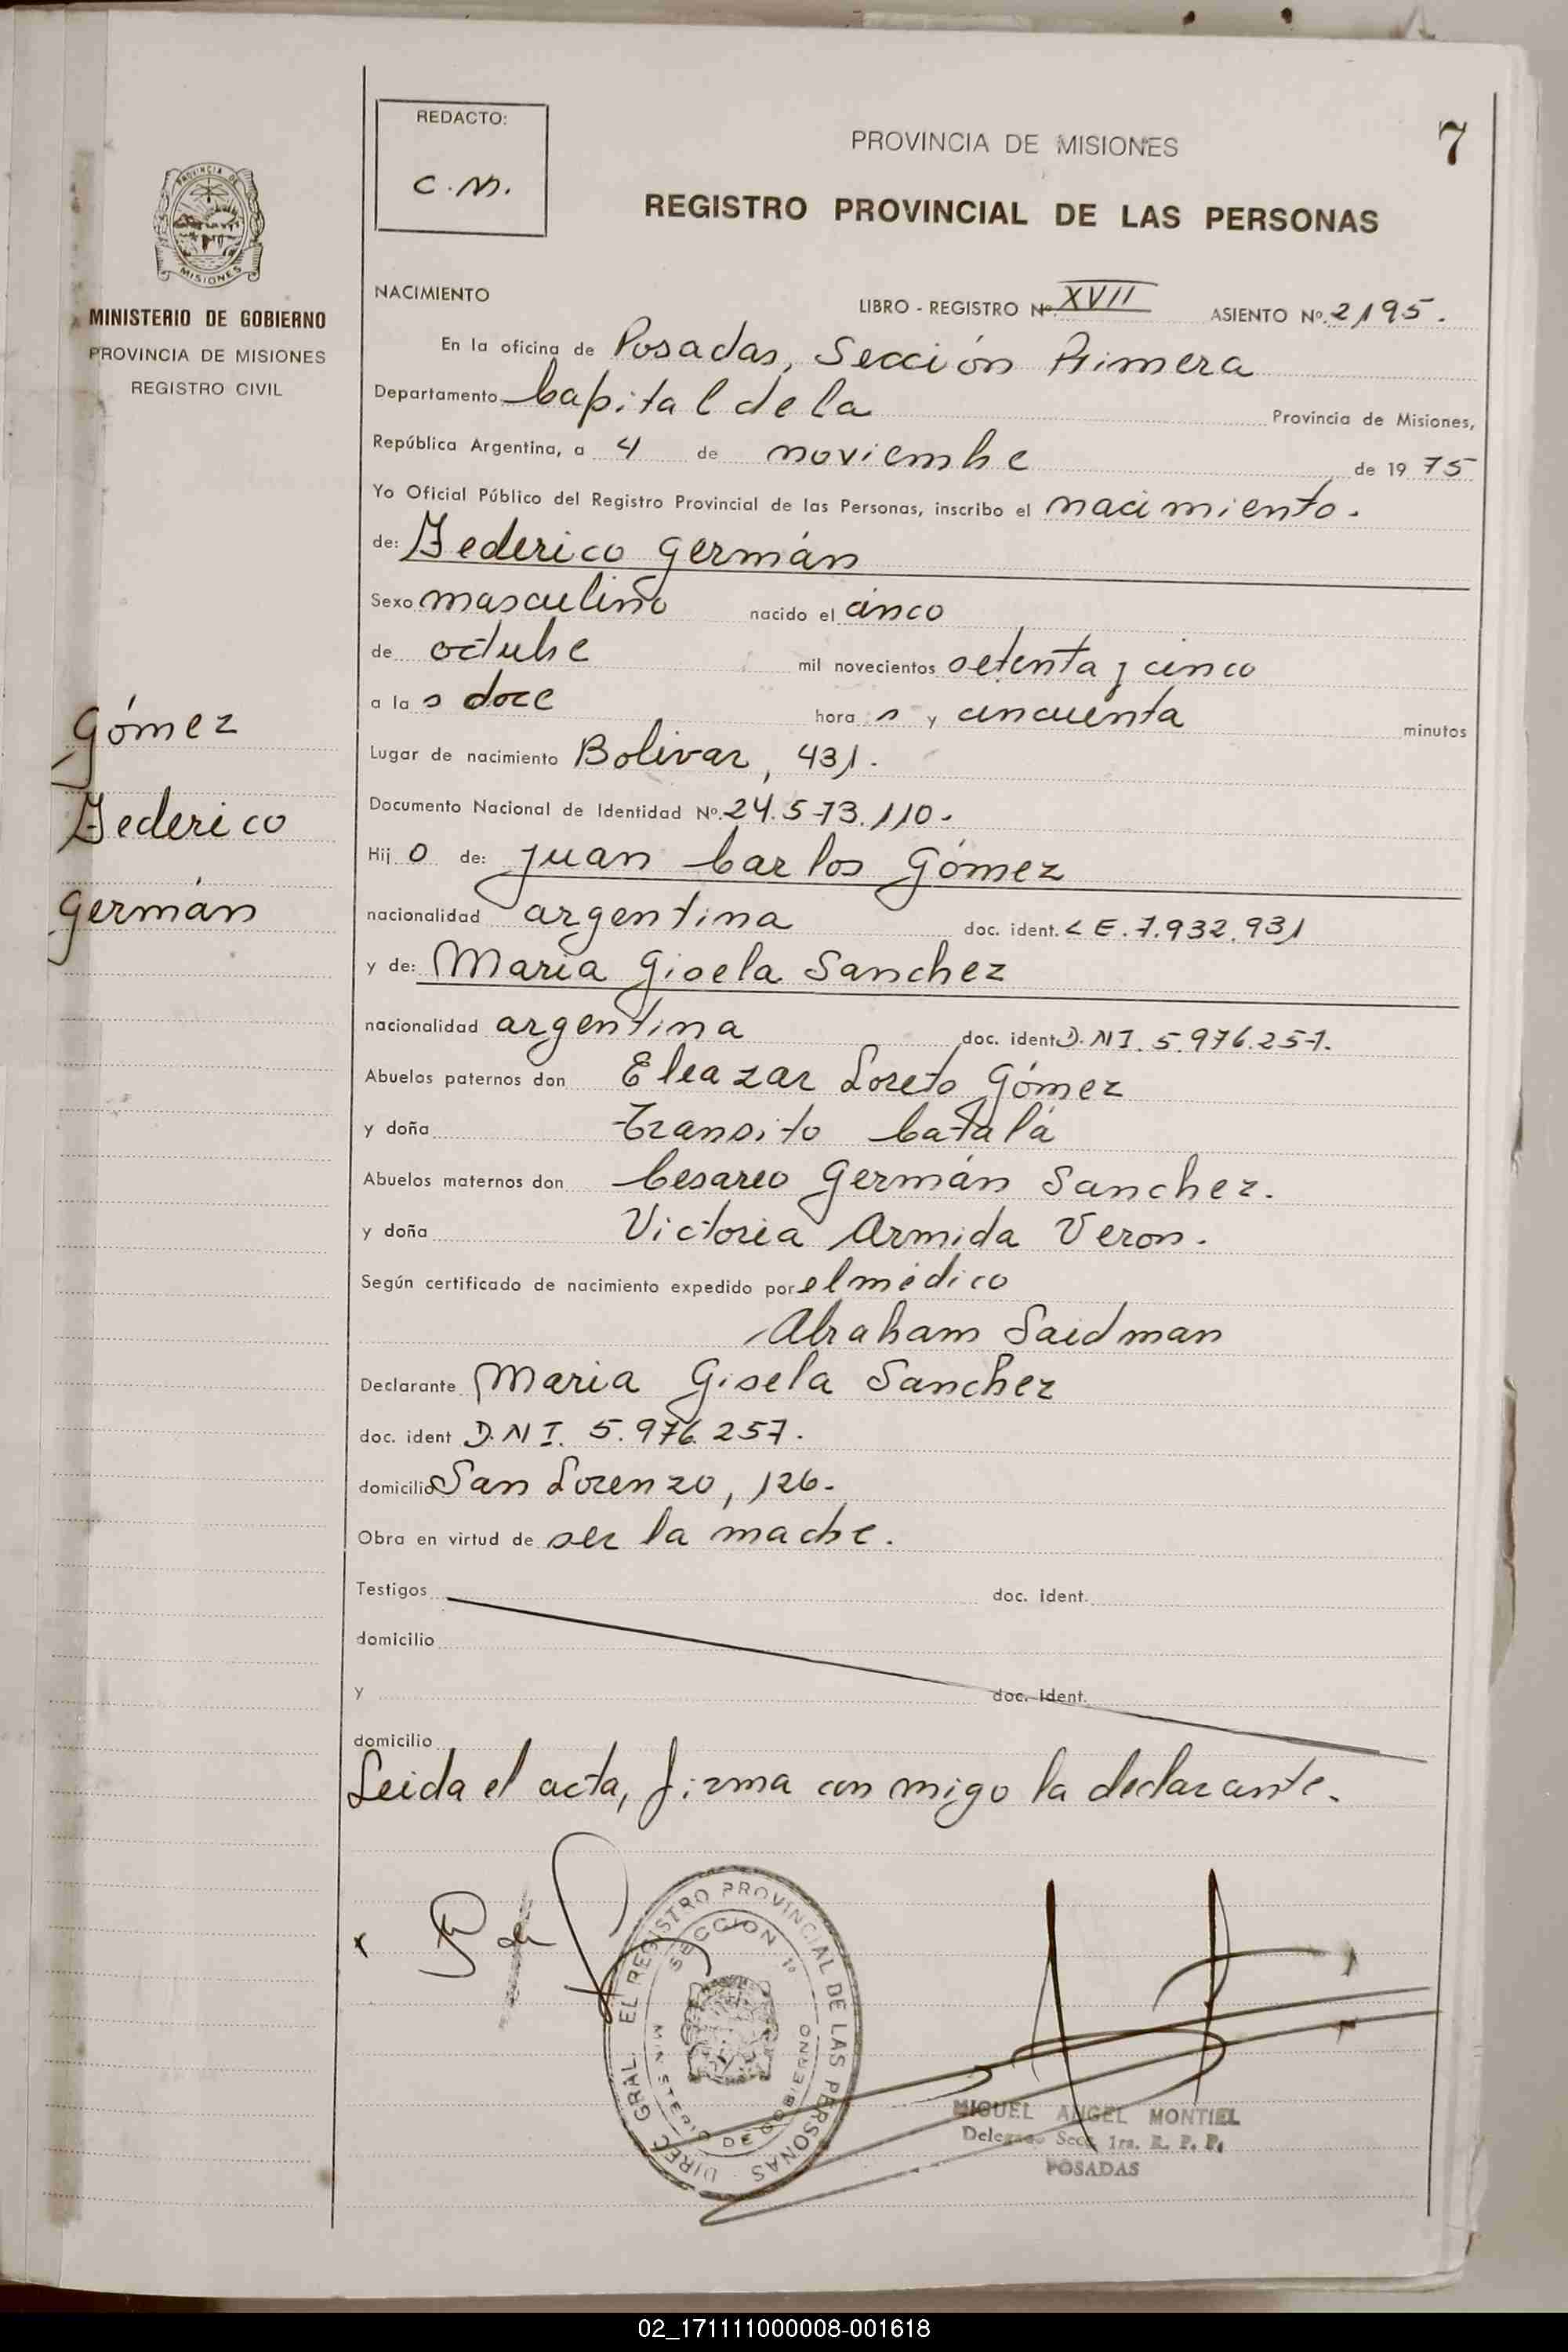 REDACTO:
C. M.
PROVINCIA DE MISIONES
7
REGISTRO PROVINCIAL DE LAS PERSONAS
PROVINCIA DE
MISIONES
MINISTERIO DE GOBIERNO
PROVINCIA DE MISIONES
REGISTRO CIVIL
NACIMIENTO
LIBRO - REGISTRO Nº XVII ASIENTO Nº. 2195.
En la oficina de Posadas, Sección Primera
Departamento Capital de la Provincia de Misiones,
República Argentina, a 4 de noviembre de 19 75
Yo Oficial Público del Registro Provincial de las Personas, inscribo el nacimiento.
de: Federico Germán
Sexo masculino nacido el cinco
de octubre mil novecientos setenta y cinco
a la s doce hora s y cincuenta minutos
Lugar de nacimiento Bolivar, 431.
Documento Nacional de Identidad Nº. 24.573.110.
Hij o de: Juan Carlos Gómez
nacionalidad argentina doc. ident. L E. 7.932.931
y de: Maria Gisela Sanchez
nacionalidad argentina doc. ident D. N I. 5.976.257.
Abuelos paternos don Eleazar Loreto Gómez
y doña Transito Catalá
Abuelos maternos don Cesareo Germán Sanchez.
y doña Victoria Armida Veron.
Según certificado de nacimiento expedido por el médico
Abraham Saidman
Declarante Maria Gisela Sanchez
doc. ident D. N I. 5.976.257.
domicilio San Lorenzo, 126.
Obra en virtud de ser la madre.
Testigos doc. ident.
domicilio
y doc. ident.
domicilio
Leida el acta, firma con migo la declarante.
Gómez
Federico
Germán
DIREC. GRAL. EL REGISTRO PROVINCIAL DE LAS PERSONAS
SECCION 1º
MINISTERIO DE GOBIERNO
MIGUEL ANGEL MONTIEL
Delegado Secc. 1ra. R. P. P.
POSADAS
02_171111000008-001618